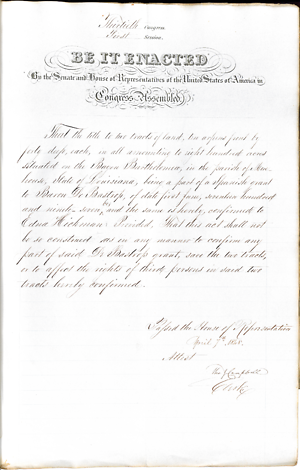 Thirtieth Congress
First Session,
BE IT ENACTED
By the Senate and House of Representatives of the United States of America in
Congress Assembled,
That the title to two tracts of land, ten arpens front by
forty deep, each, in all amounting to eight hundred arpens
situated on the Bayou Bartholomew, in the parish of
State of Louisiana, being a part of a Spanish grant
to Baron De Bastrop, of date first June, seventeen hundred
and ninety-seven, be and the same is hereby, confirmed to
Edna Hickman: Provided, That this act shall not
be so construed as in any manner to confirm any
part of said De Bastrop's grant, save the two tracts,
or to affect the rights of third persons in said two
tracts hereby confirmed.
Passed the House of Representatives
April 7th, 1848.
Attest
Tho J Campbell
Clerk